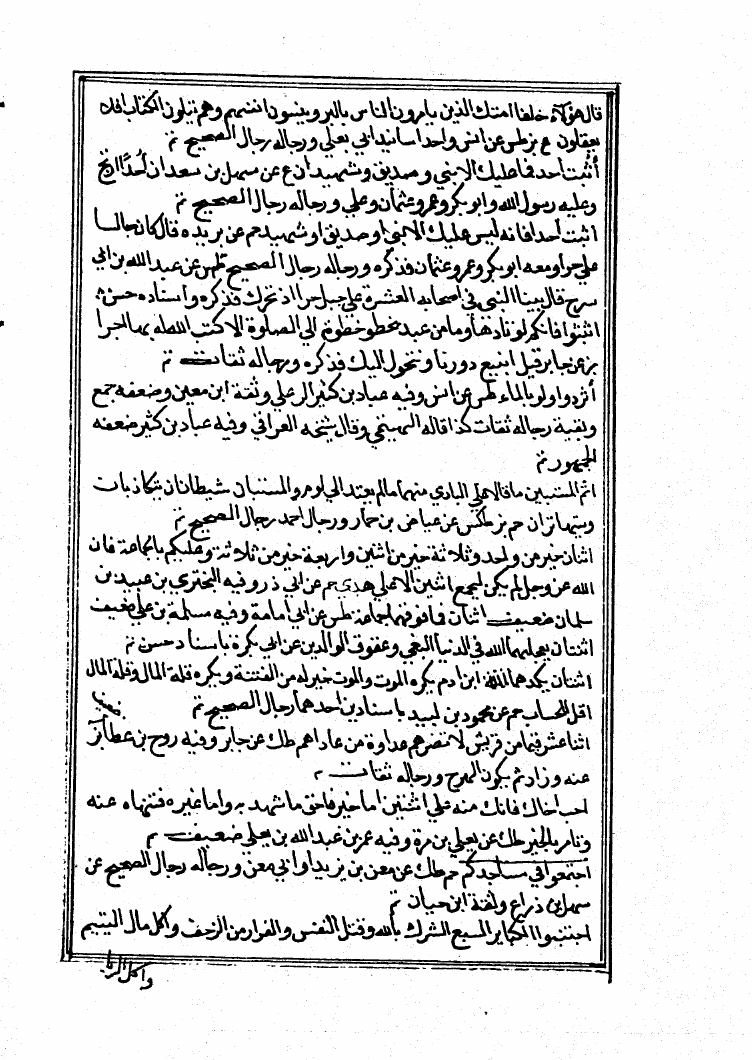 قال هؤلاء خلفاء امتك الذين يأمرون الناس بالبر وينسون انفسهم وهم يتلون الكتاب افلا
يعقلون ع بز طس عن انس واحد اسانيد ابي يعلي ورجاله رجال الصحيح تم
أثبت أحد فما عليك الا نبي وصديق وشهيدان ع عن سهل بن سعد ان أحدًا ارتج
وعليه رسول الله وابو بكر وعمر وعثمان وعلي ورجاله رجال الصحيح تم
اثبت أحد فانه ليس عليك الا نبي او صديق او شهيد حم عن بريده قال كان جالسا
علي حرا ومعه ابو بكر وعمر وعثمان فذكره ورجاله رجال الصحيح طس عن عبد الله بن ابي
سرح قال بينا النبي في اصحابه العشرة علي جبل حرا اذ تحرك فذكره واسناده حسن
اثبتوا فانكم اوتادها وما من عبد يخطو خطوة الي الصلوة الا كتب الله له بها اجرا
بز عن جابر قيل ابنيع دورنا ونتحول اليك فذكره ورجاله ثقات تم
أثردوا ولو بالماء طس عن انس وفيه عباد بن كثير الرملي وثقة ابن معين وضعفه جمع
وبقية رجاله ثقات كذا قاله الهيثمي وقال شيخه العراقي وفيه عباد بن كثير ضعفه
الجمهور تم
اثم المستبين ما قالا علي البادي منهما ما لم يعتد المظلوم والمستبان شيطانان يتكاذبان
ويتهاتران حم بز طكس عن عياض بن حمار ورجال احمد رجال الصحيح تم
اثنان خير من واحد وثلاثة خير من اثنين واربعة خير من ثلاثة وعليكم بالجماعة فان
الله عز وجل لم يكن ليجمع امتي الا علي هدي حم عن ابي ذر وفيه البختري بن عبيد بن
سلمان ضعيف اثنان فما فوقهما جماعة طس عن ابي امامة وفيه مسلمة بن علي ضعيف
اثنتان يعجلهما الله في الدنيا البغي وعقوق الوالدين عن ابي بكرة باسناد حسن تم
اثنتان يكرههما ابن ادم يكره الموت والموت خير له من الفتنة ويكره قلة المال وقلة المال
اقل للحساب حم عن محمود بن لبيد باسنادين احدهما رجال الصحيح تم
اثنا عشر قيما من قريش لا تضرهم عداوة من عاداهم طك عن جابر وفيه روح بن عطا بز
عنه وزاد ثم يكون الهرج ورجاله ثقات
احب اخاك فانك منه علي اثنتين اما خير فاحق ما شهد به واما غيره فتنهاه عنه
وتامر بالخير طك عن يعلي بن مرة وفيه عمر بن عبد الله بن يعلي ضعيف
اجتمعوا في مساجدكم حم طك عن معن بن يزيد او ابي معن ورجاله رجال الصحيح عن
سهل بن ذراع وثقة ابن حيان تم
اجتنبوا الكبائر السبع الشرك بالله وقتل النفس والفرار من الزحف واكل مال اليتيم
واكل الربا